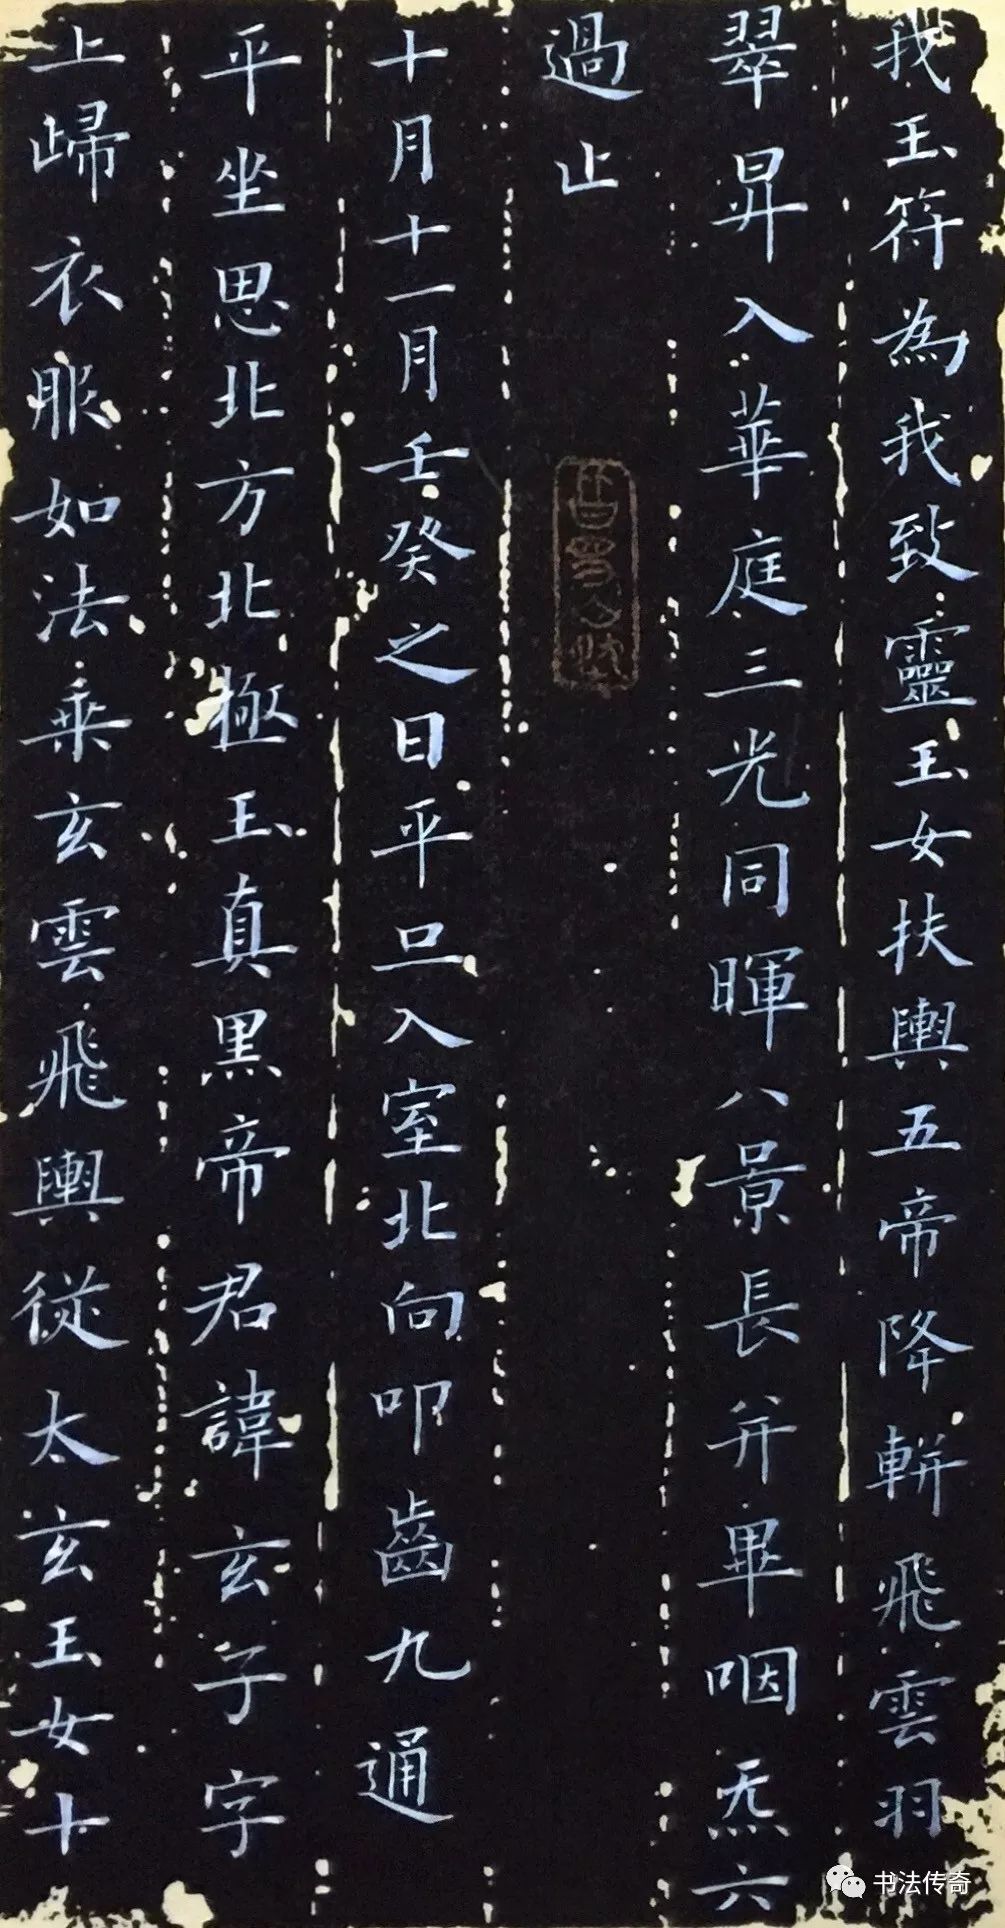 我玉符為我致靈玉女扶輿五帝降軿飛雲羽
翠昇入華庭三光同暉八景長并畢咽炁六
過止
十月十一月壬癸之日平旦入室北向叩齒九通
平坐思北方北極玉真黑帝君諱玄子字
上歸衣服如法乘玄雲飛輿從太玄玉女十
书法传奇